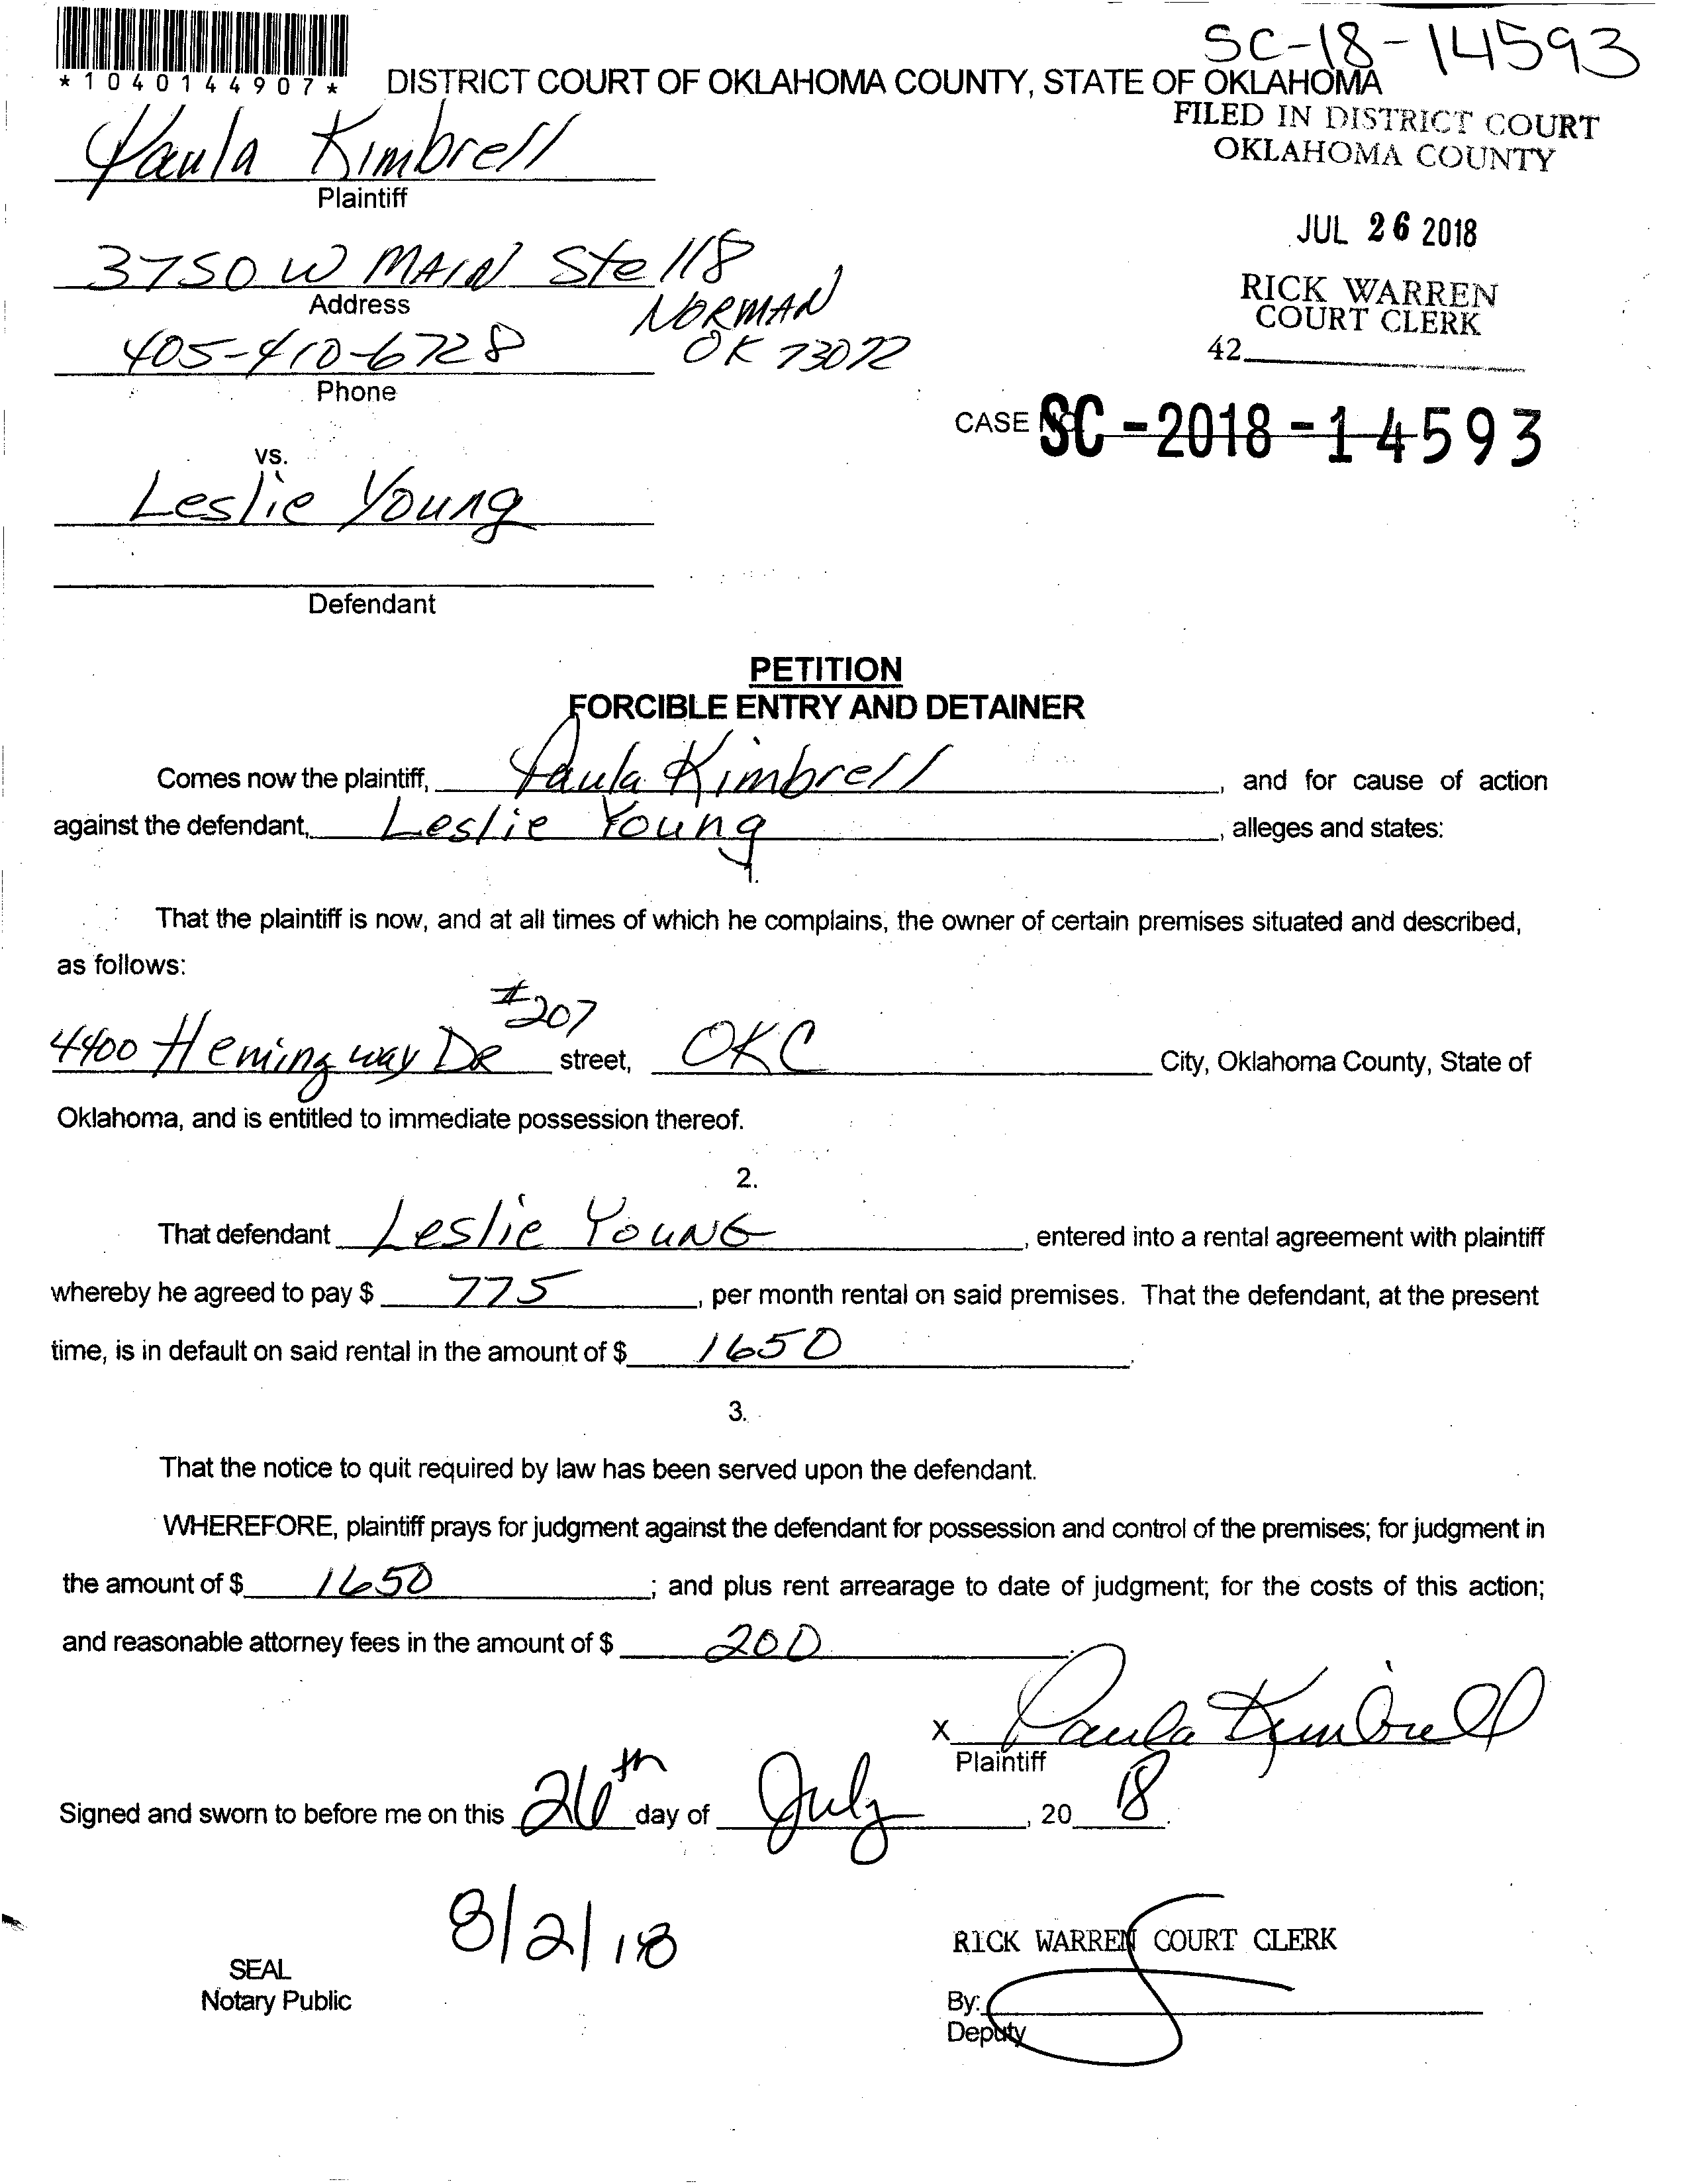 SC-18-14593
*1040144907*
DISTRICT COURT OF OKLAHOMA COUNTY, STATE OF OKLAHOMA
FILED IN DISTRICT COURT
OKLAHOMA COUNTY
Paula Kimbrell
Plaintiff
JUL 26 2018
3750 W MAIN Ste 118
Address
NORMAN
OK 73072
RICK WARREN
COURT CLERK
405-410-6728
Phone
42
CASE NO. SC-2018-14593
vs.
Leslie Young
Defendant
PETITION
FORCIBLE ENTRY AND DETAINER
Comes now the plaintiff, Paula Kimbrell, and for cause of action
against the defendant, Leslie Young, alleges and states:
1.
That the plaintiff is now, and at all times of which he complains, the owner of certain premises situated and described,
as follows:
#207
4400 Hemingway DR street, OKC City, Oklahoma County, State of
Oklahoma, and is entitled to immediate possession thereof.
2.
That defendant Leslie YOUNG, entered into a rental agreement with plaintiff
whereby he agreed to pay $ 775, per month rental on said premises. That the defendant, at the present
time, is in default on said rental in the amount of $ 1650.
3.
That the notice to quit required by law has been served upon the defendant.
WHEREFORE, plaintiff prays for judgment against the defendant for possession and control of the premises; for judgment in
the amount of $ 1650; and plus rent arrearage to date of judgment; for the costs of this action;
and reasonable attorney fees in the amount of $ 200.
X Paula Kimbrell
Plaintiff
Signed and sworn to before me on this 26th day of July, 20 18.
8/2/18
SEAL
Notary Public
RICK WARREN COURT CLERK
By:
Deputy